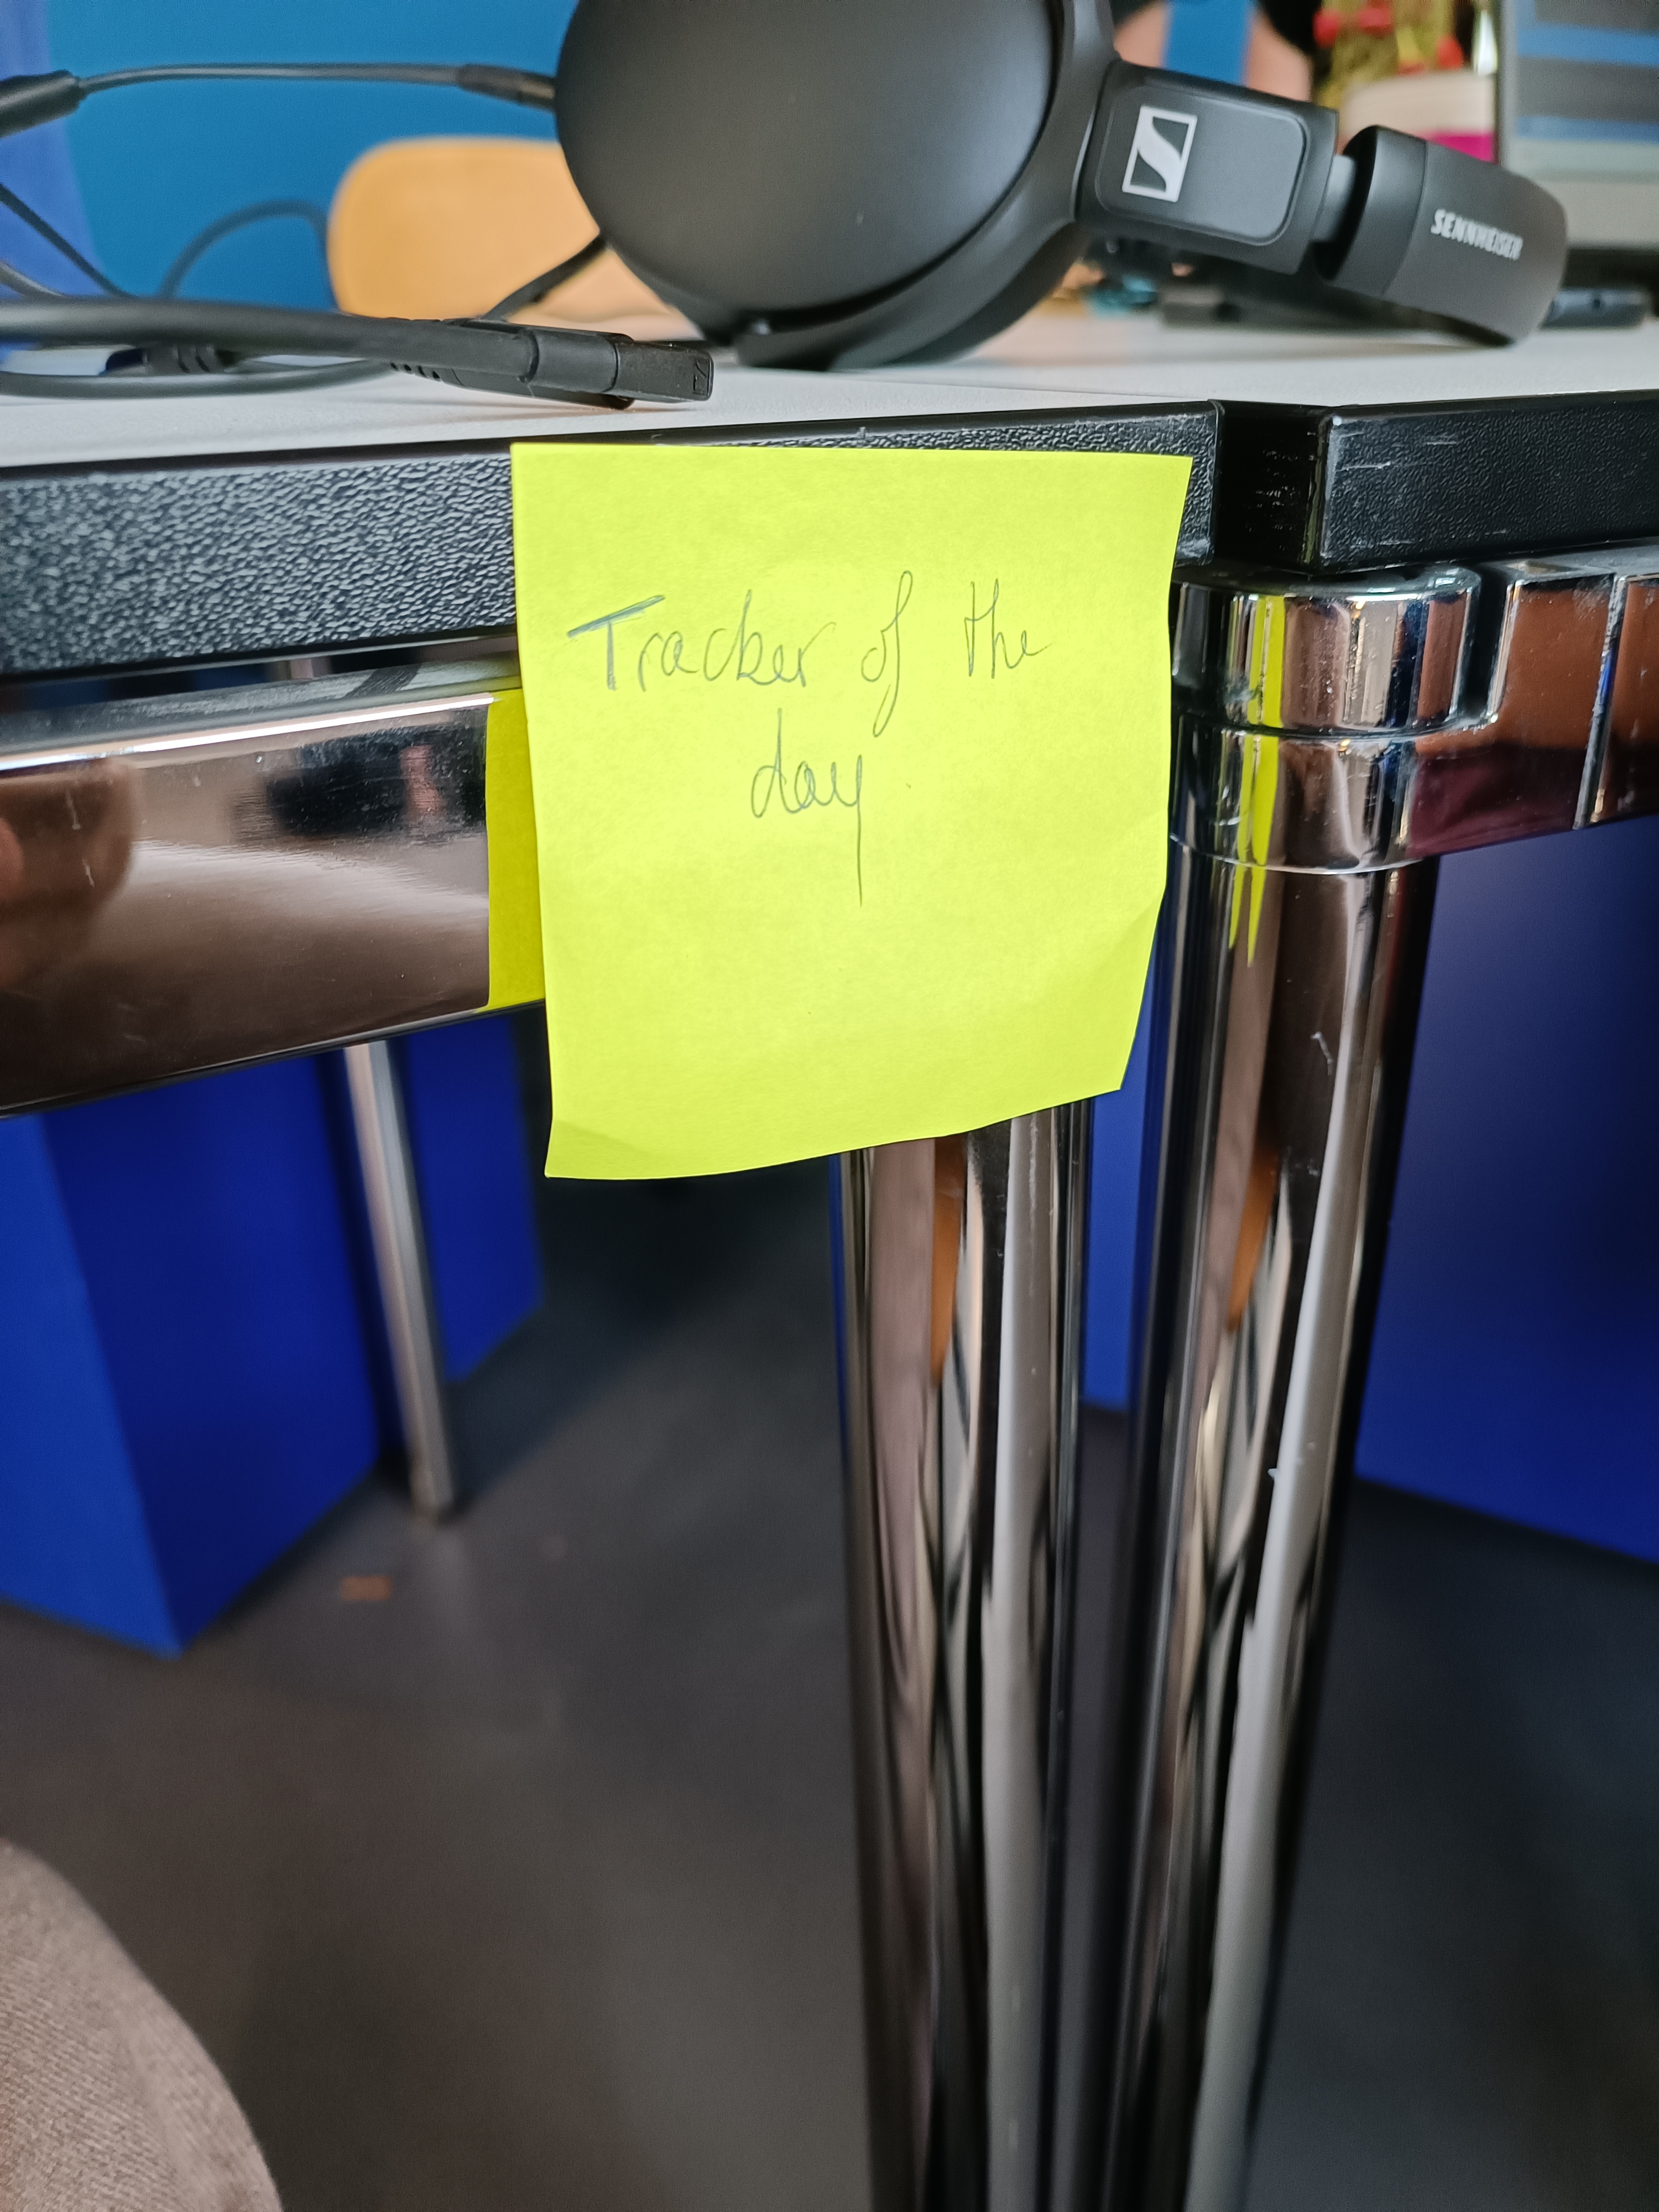 SENNHEISER
Tracker of the
day